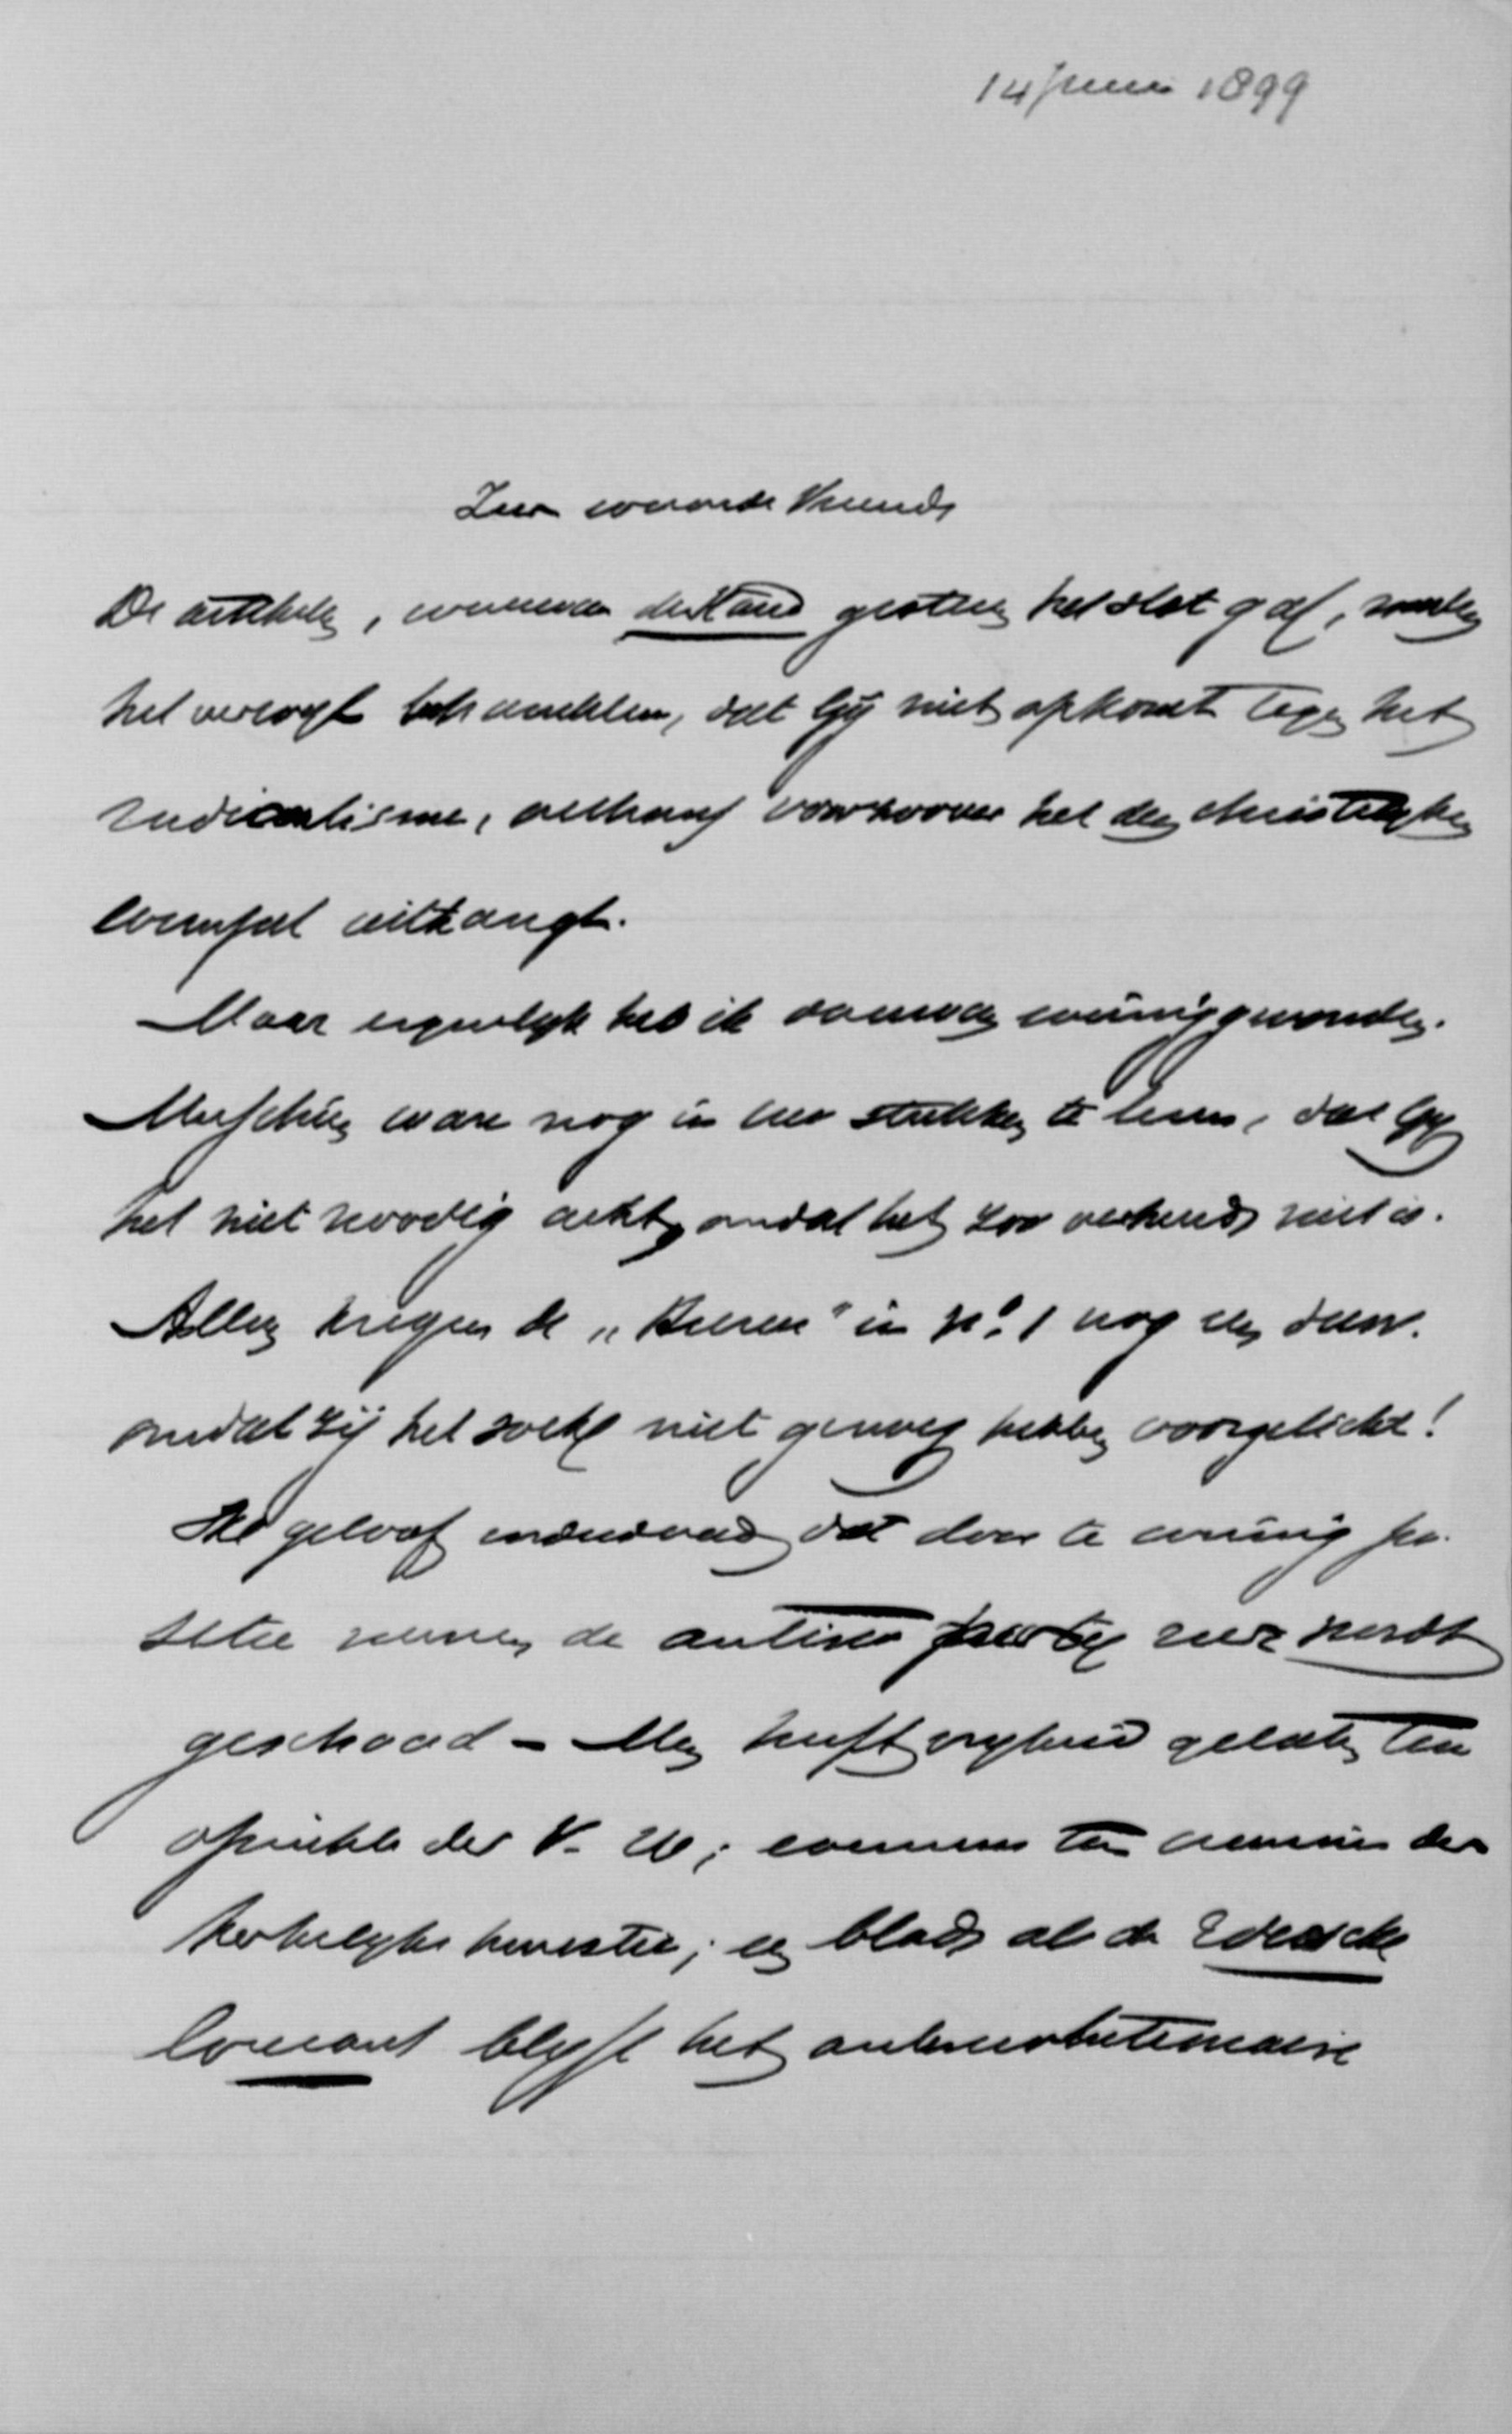 14 Juni 1899
Zeer waarde Vriend,
De artikelen, waarvan de Stand gisteren het slot gaf, zouden
het verwyt behandelen, dat Gij niet opkomt tegen het
radicalisme, althans voorzoover het den christelyken
uithangt.
Maar eigenlyk heb ik daarvan weinig gevonden.
Misschien ware nog in de stukken te lezen, dat Gij
het niet noodig acht, omdat het zoo verkeerd niet is.
Alleen kregen de "Heeren" in No. 1 nog een duw.
omdat zij het volk niet genoeg hebben voorgelicht!
Ik geloof inderdaad dat door te weinig po-
sitie nemen de antirev partij zeer wordt
geschaad – Men heeft vryheid gelaten ten
opzichte der V. U; eveneens ten aanzien der
kerkelyke kwestie; een blad als de Edesche
Courant blyft het antirevolutionaire